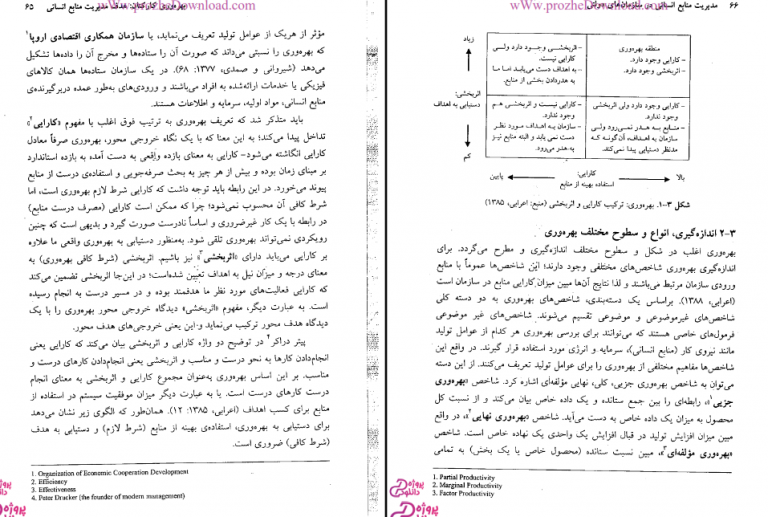 www.prozheDownload.com
بهره‌وری کارکنان: هدف مدیریت منابع انسانی ۶۵
مؤثر از هریک از عوامل تولید تعریف می‌نماید، یا سازمان همکاری اقتصادی اروپا۱
که بهره‌وری را نسبتی می‌داند که صورت آن را ستاده‌ها و مخرج آن را داده‌ها تشکیل
می‌دهد (شیروانی و صمدی، ۱۳۷۷: ۶۸). در یک سازمان ستاده‌ها همان کالاهای
فیزیکی یا خدمات ارائه‌شده به افراد می‌باشند و ورودی‌های به‌طور عمده دربرگیرنده‌ی
منابع انسانی، مواد اولیه، سرمایه و اطلاعات هستند.
باید متذکر شد که تعریف بهره‌وری به ترتیب فوق اغلب با مفهوم «کارایی۲»
تداخل پیدا می‌کند؛ به این معنا که با یک نگاه خروجی محور، بهره‌وری صرفاً معادل
کارایی انگاشته می‌شود- کارایی به معنای بازده واقعی به دست آمده به بازده استاندارد
بر مبنای زمان بوده و بیش از هر چیز به بحث صرفه‌جویی و استفاده‌ی درست از منابع
پیوند می‌خورد. در این رابطه باید توجه داشت که کارایی شرط لازم بهره‌وری است، اما
شرط کافی آن محسوب نمی‌شود؛ چرا که ممکن است کارایی (مصرف درست منابع)
در رابطه با یک کار غیرضروری و اساساً نادرست صورت گیرد و بدیهی است که چنین
رویکردی نمی‌تواند بهره‌وری تلقی شود. به‌منظور دستیابی به بهره‌وری واقعی ما علاوه
بر کارایی می‌باید دارای «اثربخشی۳» نیز باشیم. اثربخشی (شرط کافی بهره‌وری) به
معنای درجه و میزان نیل به اهداف تعیین شده‌است؛ در این‌جا اثربخشی تضمین می‌کند
که کارایی فعالیت‌های مورد نظر ما هدفمند بوده و در مسیر درست به انجام رسیده
است. به عبارت دیگر، مفهوم «اثربخشی» دیدگاه خروجی محور بهره‌وری را با یک
دیدگاه هدف محور ترکیب می‌نماید و این یعنی خروجی‌های هدف محور.
پیتر دراکر۴ در توضیح دو واژه کارایی و اثربخشی بیان می‌کند که کارایی یعنی
انجام‌دادن کارها به نحو درست و مناسب و اثربخشی یعنی انجام‌دادن کارهای درست و
مناسب. بر این اساس بهره‌وری به‌عنوان مجموع کارایی و اثربخشی به معنای انجام
درست کارهای درست است. یا به عبارت دیگر میزان موفقیت سیستم در استفاده از
منابع برای کسب اهداف (اعرابی، ۱۳۸۵: ۱۲). همان‌طور که الگوی زیر نشان می‌دهد
برای دستیابی به بهره‌وری، استفاده‌ی بهینه از منابع (شرط لازم) و دستیابی به هدف
(شرط کافی) ضروری است.
1. Organization of Economic Cooperation Development
2. Efficiency
3. Effectiveness
4. Peter Drucker (the founder of modern management)
پروژه
دانلود
www.prozheDownload.com
۶۶ مدیریت منابع انسانی در سازمان‌های دولتی
زیاد
اثربخشی:
دستیابی به اهداف
کم
منطقه بهره‌وری
- کارایی وجود دارد.
- اثربخشی وجود دارد.
- اثربخشی وجود دارد ولی
کارایی نیست.
- به اهداف دست می‌یابد اما ما
به هدردادن بخشی از منابع.
- کارایی وجود دارد ولی اثربخشی
وجود ندارد.
- منابع به هدر نمی‌رود ولی
سازمان به اهداف، آن‌گونه که
مدنظر دستیابی پیدا نمی‌کند.
- کارایی نیست و اثربخشی هم
وجود ندارد.
- سازمان به اهداف مورد نظر
دست نمی‌یابد و البته منابع نیز
به هدر می‌رود.
بالا کارایی: پایین
استفاده بهینه از منابع
شکل ۳-۱. بهره‌وری: ترکیب کارایی و اثربخشی (منبع: اعرابی، ۱۳۸۵)
۳-۲ اندازه‌گیری، انواع و سطوح مختلف بهره‌وری
بهره‌وری اغلب در شکل و سطوح مختلف اندازه‌گیری و مطرح می‌گردد. برای
اندازه‌گیری بهره‌وری شاخص‌های مختلفی وجود دارند؛ این شاخص‌ها عموماً با منابع
ورودی سازمان مرتبط می‌باشند و لذا نتایج آن‌ها مبین میزان کارایی منابع در سازمان است
(اعرابی، ۱۳۸۸). براساس یک دسته‌بندی، شاخص‌های بهره‌وری به دو دسته کلی
شاخص‌های غیرموضوعی و موضوعی تقسیم می‌شوند. شاخص‌های غیر موضوعی
فرمول‌های خاصی هستند که می‌توانند برای بررسی بهره‌وری هر کدام از عوامل تولید
مانند نیروی کار (منابع انسانی)، سرمایه و انرژی مورد استفاده قرار گیرند. در واقع این
شاخص‌ها مفاهیم مختلفی از بهره‌وری را برای عوامل تولید تعریف می‌کنند. از این دسته
می‌توان به شاخص بهره‌وری جزیی، کلی، نهایی مؤلفه‌ای اشاره کرد. شاخص «بهره‌وری
جزیی۱»، رابطه‌ای را بین جمع ستانده و یک داده خاص بیان می‌کند و از نسبت کل
محصول به میزان یک داده خاص به دست می‌آید. شاخص «بهره‌وری نهایی۲» در واقع
مبین میزان افزایش تولید در قبال افزایش یک واحدی یک نهاده خاص است. شاخص
«بهره‌وری مؤلفه‌ای۳»، مبین نسبت ستانده (محصول خاص یا یک بخش) به تمامی
1. Partial Productivity
2. Marginal Productivity
3. Factor Productivity
پروژه
دانلود
پروژه